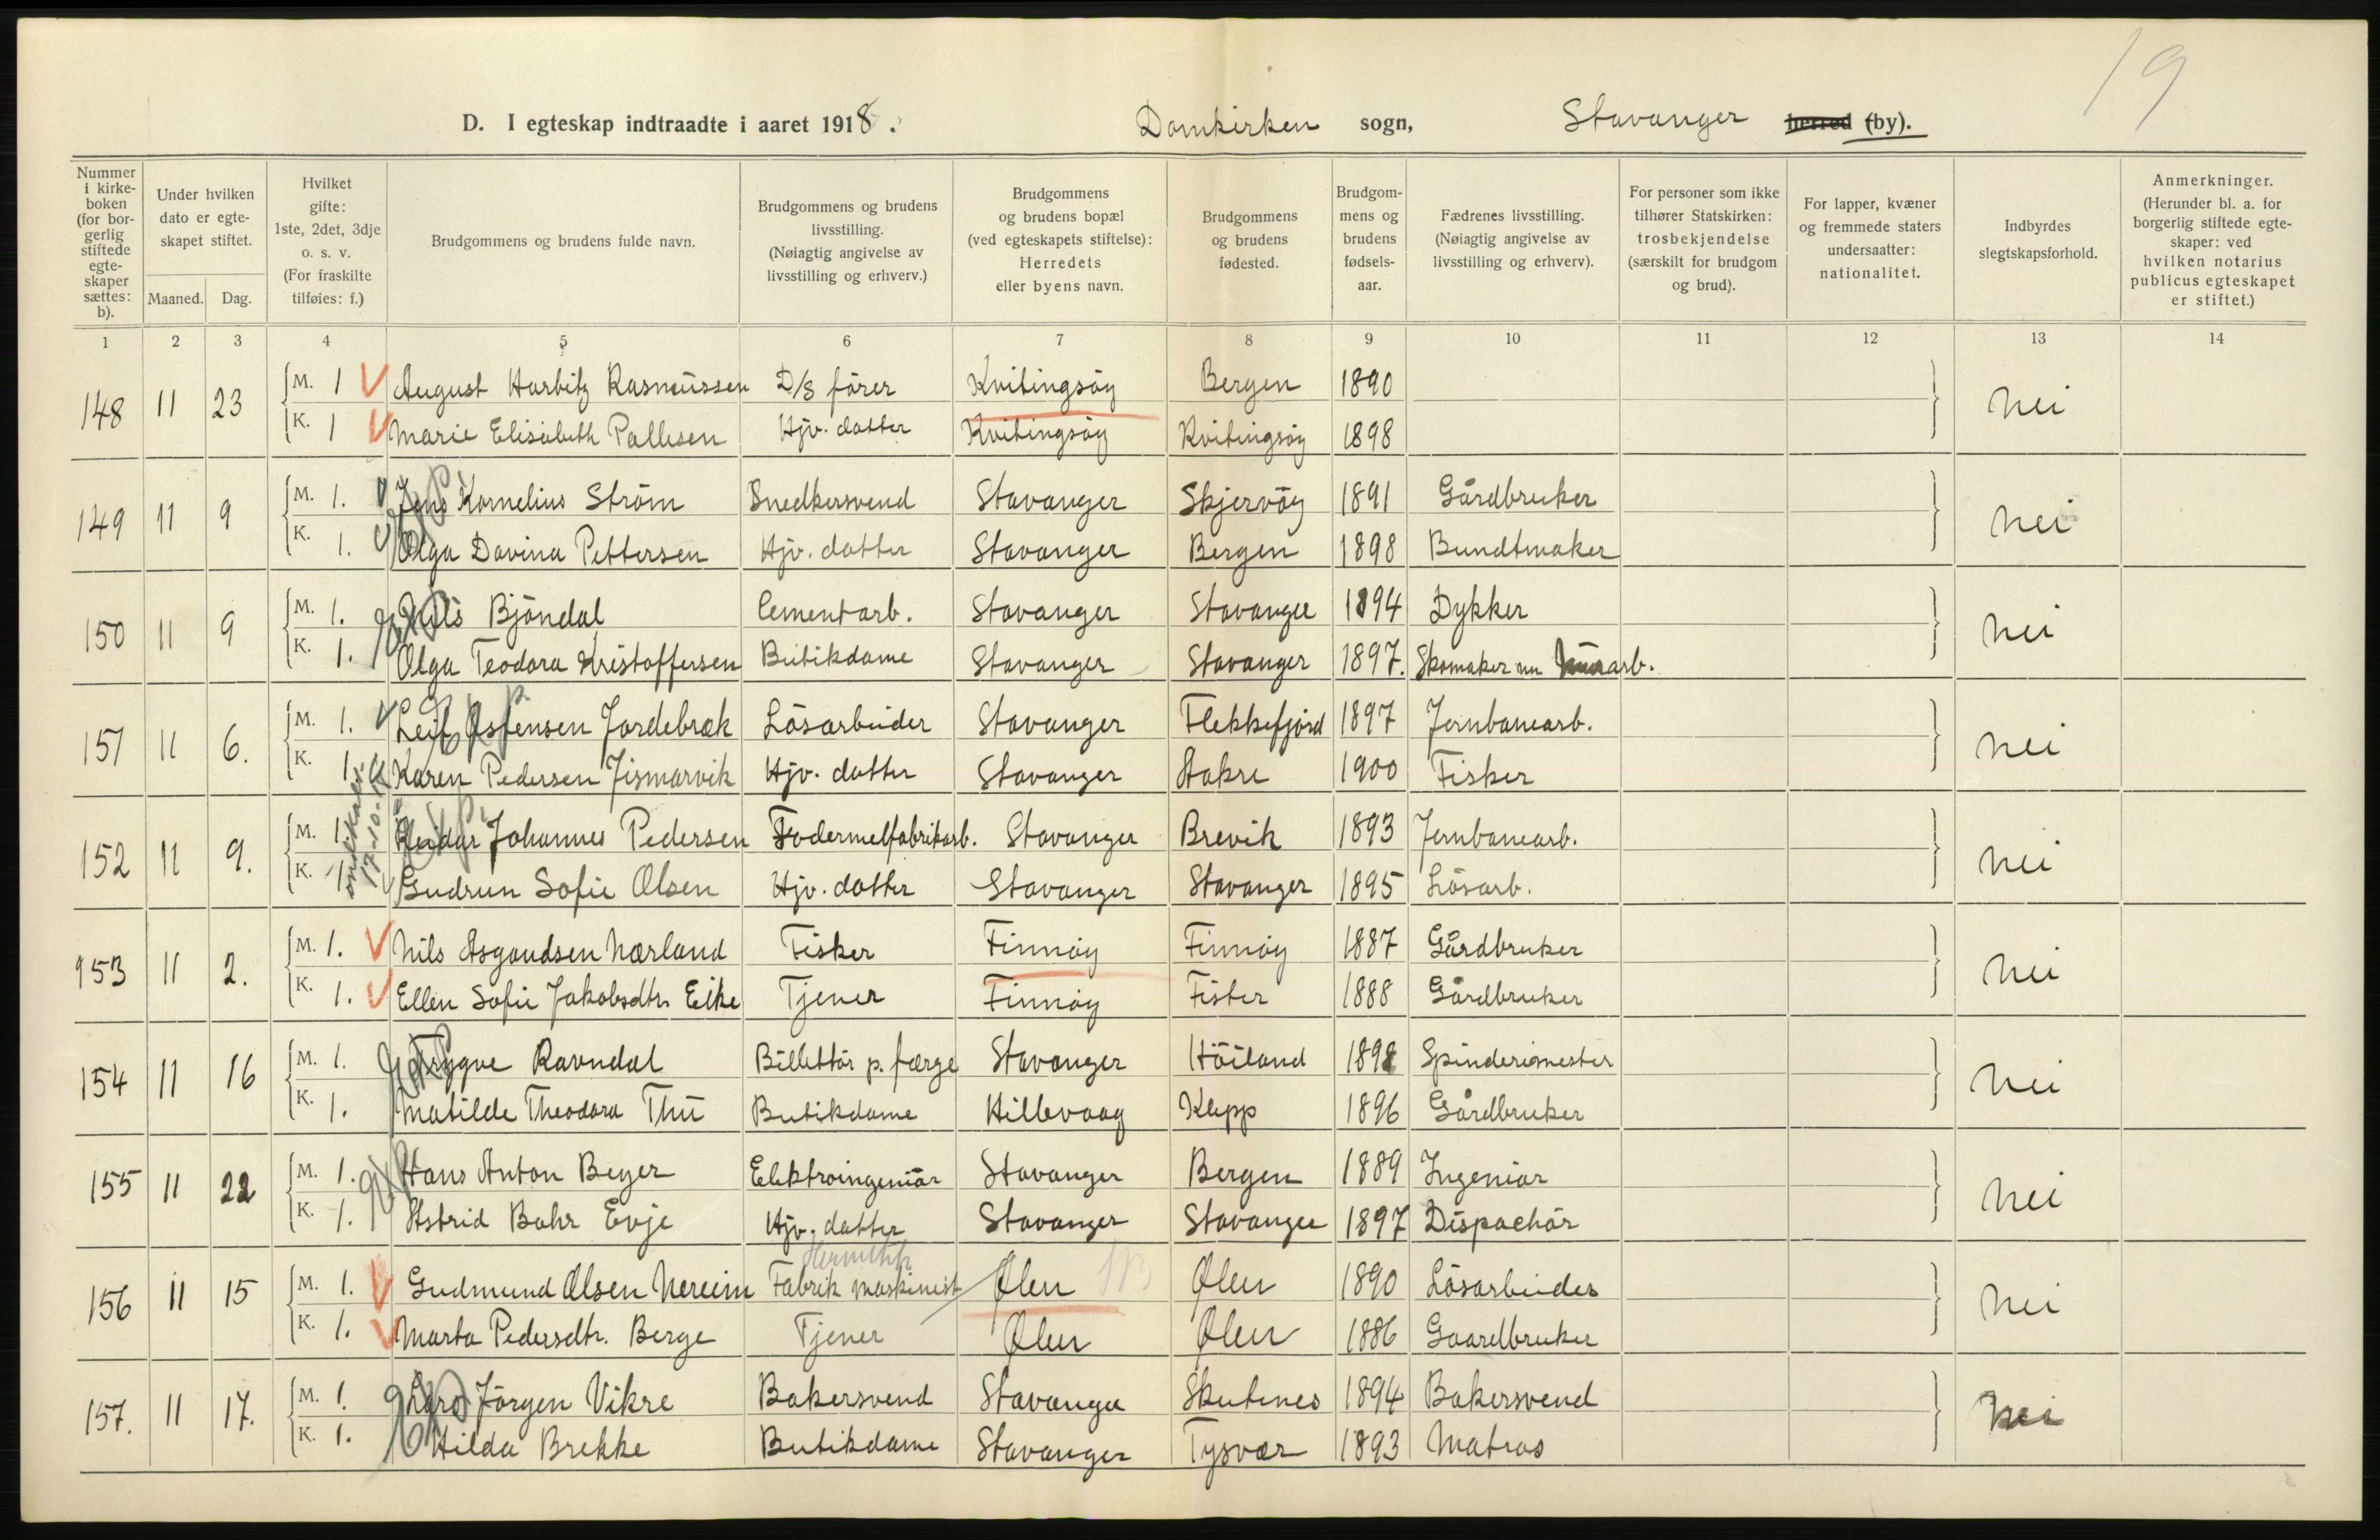 19
D. I egteskap indtraadte i aaret 1918. Domkirken sogn, Stavanger herred (by).
Nummer i kirkeboken (for borgerlig stiftede egteskaper sættes: b).
Under hvilken dato er egteskapet stiftet.
Maaned. Dag.
Hvilket gifte: 1ste, 2det, 3dje o. s. v. (For fraskilte tilføies: f.)
Brudgommens og brudens fulde navn.
Brudgommens og brudens livsstilling. (Nøiagtig angivelse av livsstilling og erhverv.)
Brudgommens og brudens bopæl (ved egteskapets stiftelse): Herredets eller byens navn.
Brudgommens og brudens fødested.
Brudgommens og brudens fødselsaar.
Fædrenes livsstilling. (Nøiagtig angivelse av livsstilling og erhverv).
For personer som ikke tilhører Statskirken: trosbekjendelse (særskilt for brudgom og brud).
For lapper, kvæner og fremmede staters undersaatter: nationalitet.
Indbyrdes slegtskapsforhold.
Anmerkninger. (Herunder bl. a. for borgerlig stiftede egteskaper: ved hvilken notarius publicus egteskapet er stiftet.)
1 2 3 4 5 6 7 8 9 10 11 12 13 14
148 11 23 M. 1 August Harbitz Rasmussen D/S förer Kvitingsöy Bergen 1890 nei
K. 1 Marie Elisabeth Pallesen Hjv. datter Kvitingsöy Kvitingsöy 1898
149 11 9 M. 1. Jens Kornelius Ström Snedkersvend Stavanger Skjervöy 1891 Gårdbruker nei
K. 1. Olga Davina Pettersen Hjv. datter Stavanger Bergen 1898 Bundtmaker
150 11 9 M. 1. Nils Bjöndal Cementarb. Stavanger Stavanger 1894 Dykker nei
K. 1. Olga Teodora Kristoffersen Butikdame Stavanger Stavanger 1897. Skomaker nu
151 11 6. M. 1. Leif Jordebræk Lösarbeider Stavanger Flekkefjord 1897 Jernbanearb. nei
K. 1. Karen Pedersen Hjv. datter Stavanger 1900 Fisker
152 11 9. M. 1. Reidar Johannes Pedersen Fodermelfabrikarb. Stavanger Brevik 1893 Jernbanearb. nei
K. 1. Gudrun Sofie Olsen Hjv. datter Stavanger Stavanger 1895 Lösarb.
153 11 2. M. 1. Nils Asgautsen Nærland Fisker Finnöy Finnöy 1887 Gårdbruker nei
K. 1. Ellen Sofie Jakobsdtr. Eike Tjener Finnöy Fister 1888 Gårdbruker
154 11 16 M. 1. Trygve Ravndal Billettör p. færge Stavanger Höiland 1898 Spinderimester nei
K. 1. Matilde Theodora Thu Butikdame Hillevaag Klepp 1896 Gårdbruker
155 11 22 M. 1. Hans Anton Beyer Elektroingeniör Stavanger Bergen 1889 Ingeniör nei
K. 1. Astrid Bahr Evje Hjv. datter Stavanger Stavanger 1897 Dispachör
156 11 15 M. 1. Gudmund Olsen Nereim Fabrik maskinist Ølen Ølen 1890 Lösarbeider nei
K. 1. Marta Pedersdtr. Berge Tjener Ølen Ølen 1886 Gaardbruker
157. 11 17. M. 1. Lars Jörgen Vikre Bakersvend Stavanger Skutenes 1894 Bakersvend nei
K. 1. Hilda Brekke Butikdame Stavanger Tysvær 1893 Matros